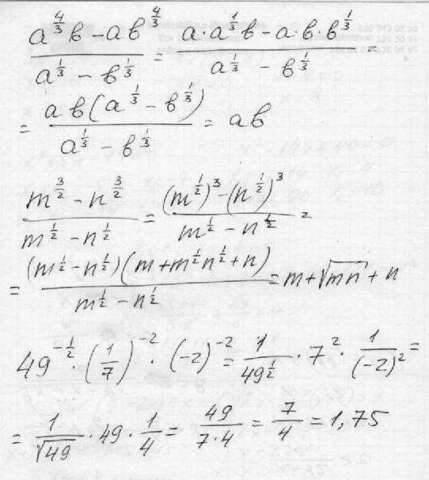 a^{4/3}в - aв^{4/3} / a^{1/3} - в^{1/3} = a·a^{1/3}в - a·в·в^{1/3} / a^{1/3} - в^{1/3} =
= aв(a^{1/3} - в^{1/3}) / a^{1/3} - в^{1/3} = aв
m^{3/2} - n^{3/2} / m^{1/2} - n^{1/2} = (m^{1/2})^3 - (n^{1/2})^3 / m^{1/2} - n^{1/2} =
= (m^{1/2} - n^{1/2})(m + m^{1/2}n^{1/2} + n) / m^{1/2} - n^{1/2} = m + √mn + n
49^{-1/2} · (1/7)^{-2} · (-2)^{-2} = 1/49^{1/2} · 7^2 · 1/(-2)^2 =
= 1/√49 · 49 · 1/4 = 49/7·4 = 7/4 = 1,75